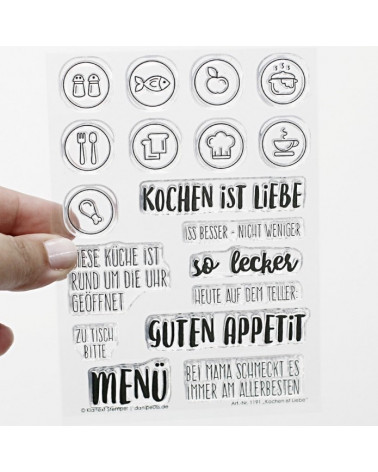 KOCHEN iST LiEBE
ISS BESSER - NICHT WENIGER
DIESE KÜCHE IST
RUND UM DIE UHR
GEÖFFNET
so lecker
HEUTE AUF DEM TELLER:
ZU TISCH,
BITTE
GUTEN APPETiT
MENÜ
BEI MAMA SCHMECKT ES
IMMER AM ALLERBESTEN
© Klartext Stempel / danipeuss.de
Art.-Nr. 1191 „Kochen ist Liebe"